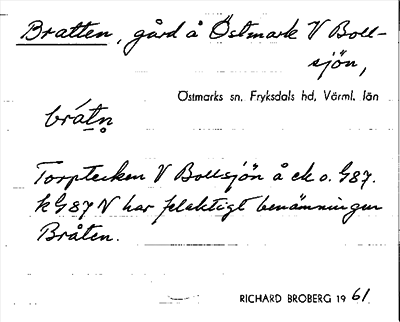 Bratten, gård å Östmark V Boll-
sjön,
Östmarks sn, Fryksdals hd, Värml. län
brátn̥
Torptecken V Bollsjön å ek o. G87.
kG87 V har felaktigt benämningen
Bråten.
RICHARD BROBERG 1961